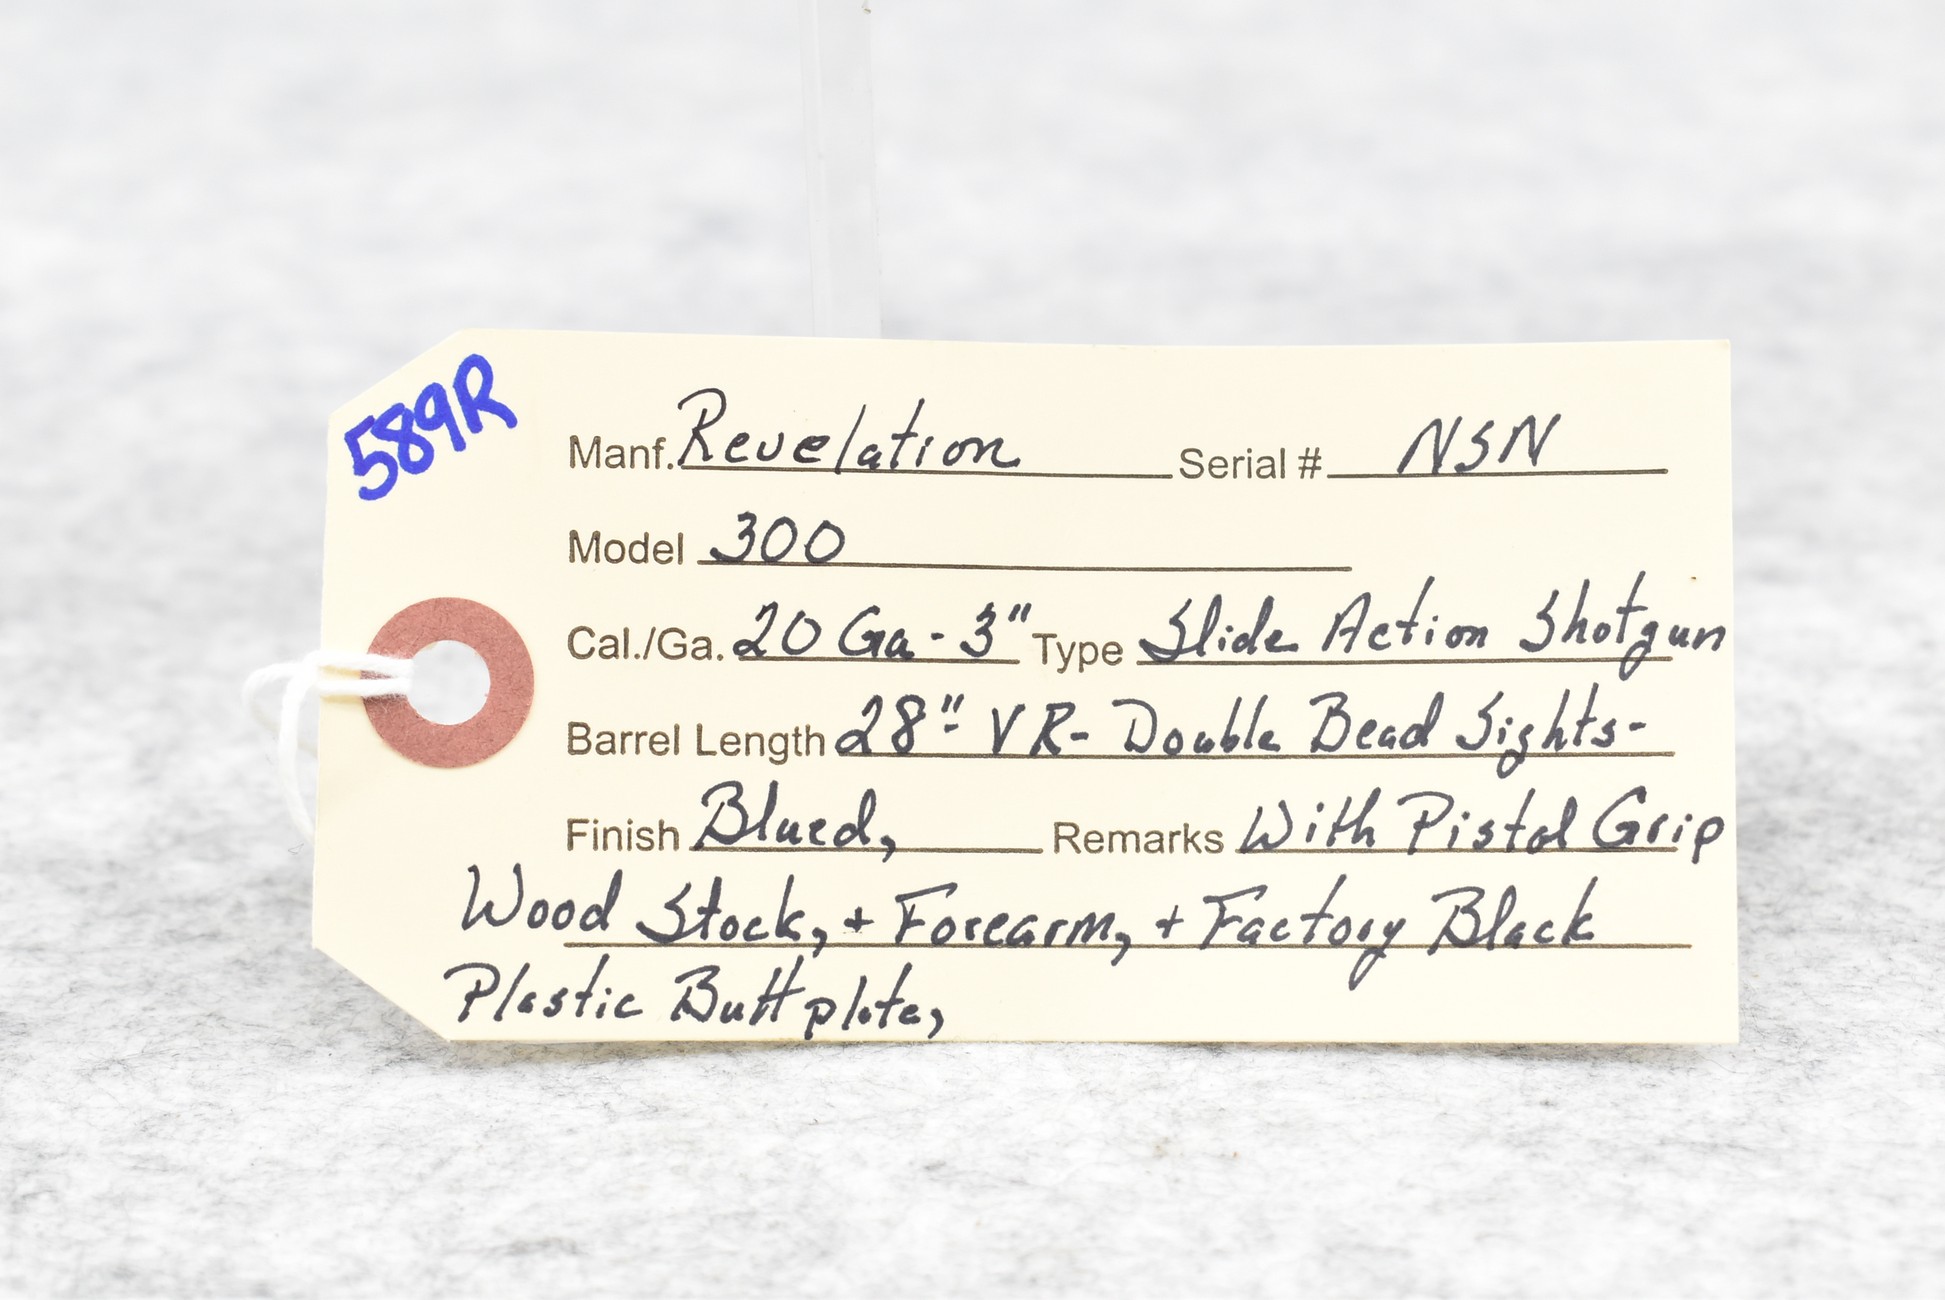 589R
Manf. Revelation Serial # NSN
Model 300
Cal./Ga. 20 Ga - 3" Type Slide Action Shotgun
Barrel Length 28" VR- Double Bead Sights-
Finish Blued, Remarks With Pistol Grip
Wood Stock, + Forearm, + Factory Black
Plastic Buttplate,